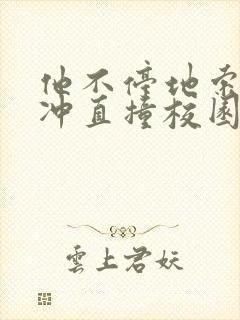 他不停地索
冲直撞校园
雲上君妖